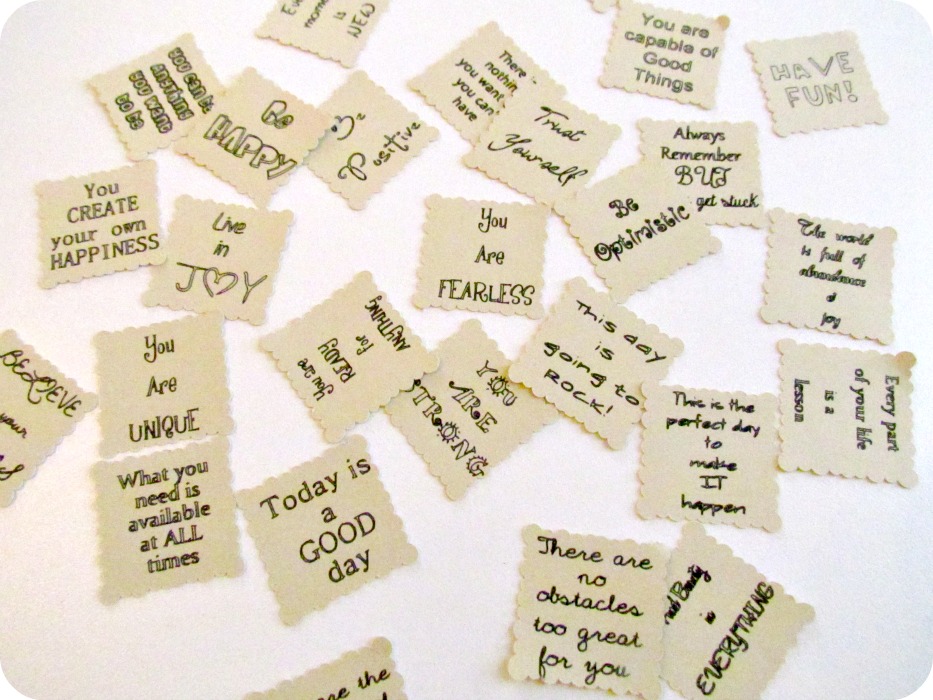 is
NEW
You are
capable of
Good
Things
HAVE
FUN!
you can be
anything
you want
to be
Be
HAPPY
Be
Positive
There
you want
you can
have
Trust
Yourself
Always
Remember
BUT
get stuck
You
CREATE
your own
HAPPINESS
Live
in
JOY
You
Are
FEARLESS
Be
Optimistic
The world
is full of
abundance
&
joy
BELIEVE
your
You
Are
UNIQUE
you are
READY
for
ANYTHING
YOU
ARE
STRONG
This day
is
going to
ROCK!
This is the
perfect day
to
make
IT
happen
Every part
of your life
is a
lesson
What you
need is
available
at ALL
times
Today is
a
GOOD
day
There are
no
obstacles
too great
for you
Beauty
in
EVERYTHING
the